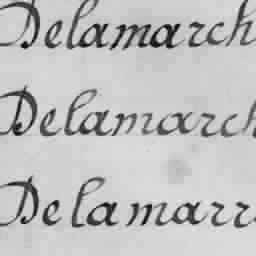 Delamarch
Delamarch
Delamarr